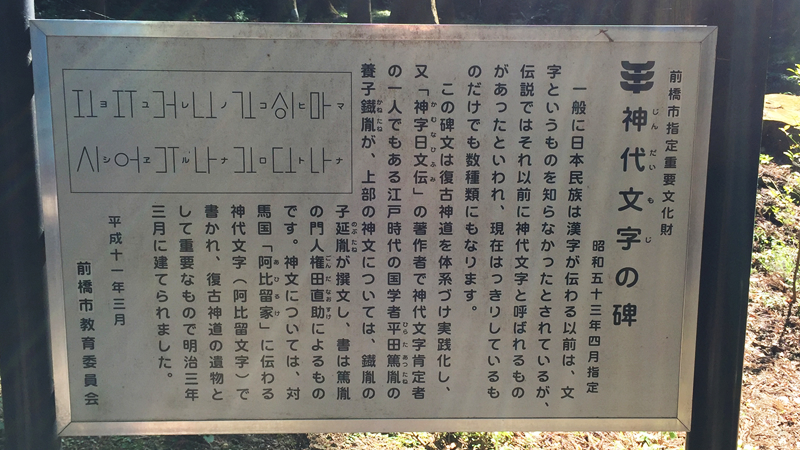 前橋市指定重要文化財
神代文字の碑
じんだいもじ
昭和五十三年四月指定
一般に日本民族は漢字が伝わる以前は、文
字というものを知らなかったとされているが、
伝説ではそれ以前に神代文字と呼ばれるもの
があったといわれ、現在はっきりしているも
のだけでも数種類にもなります。
この碑文は復古神道を体系づけ実践化し、
又「神字日文伝」の著作者で神代文字肯定者
かむなひふみ
の一人でもある江戸時代の国学者平田篤胤の
ひらたあつたね
養子鐡胤が、上部の神文については、鐡胤の
かねたね
子延胤が撰文し、書は篤胤
のぶたね
の門人権田直助によるもの
ごんだなおすけ
です。神文については、対
馬国「阿比留家」に伝わる
あひるけ
神代文字(阿比留文字)で
書かれ、復古神道の遺物と
して重要なもので明治三年
三月に建てられました。
マ ヒ コ ノ レ ユ ヨ
ナ ト ロ ナ ル ヱ シ
平成十一年三月
前橋市教育委員会